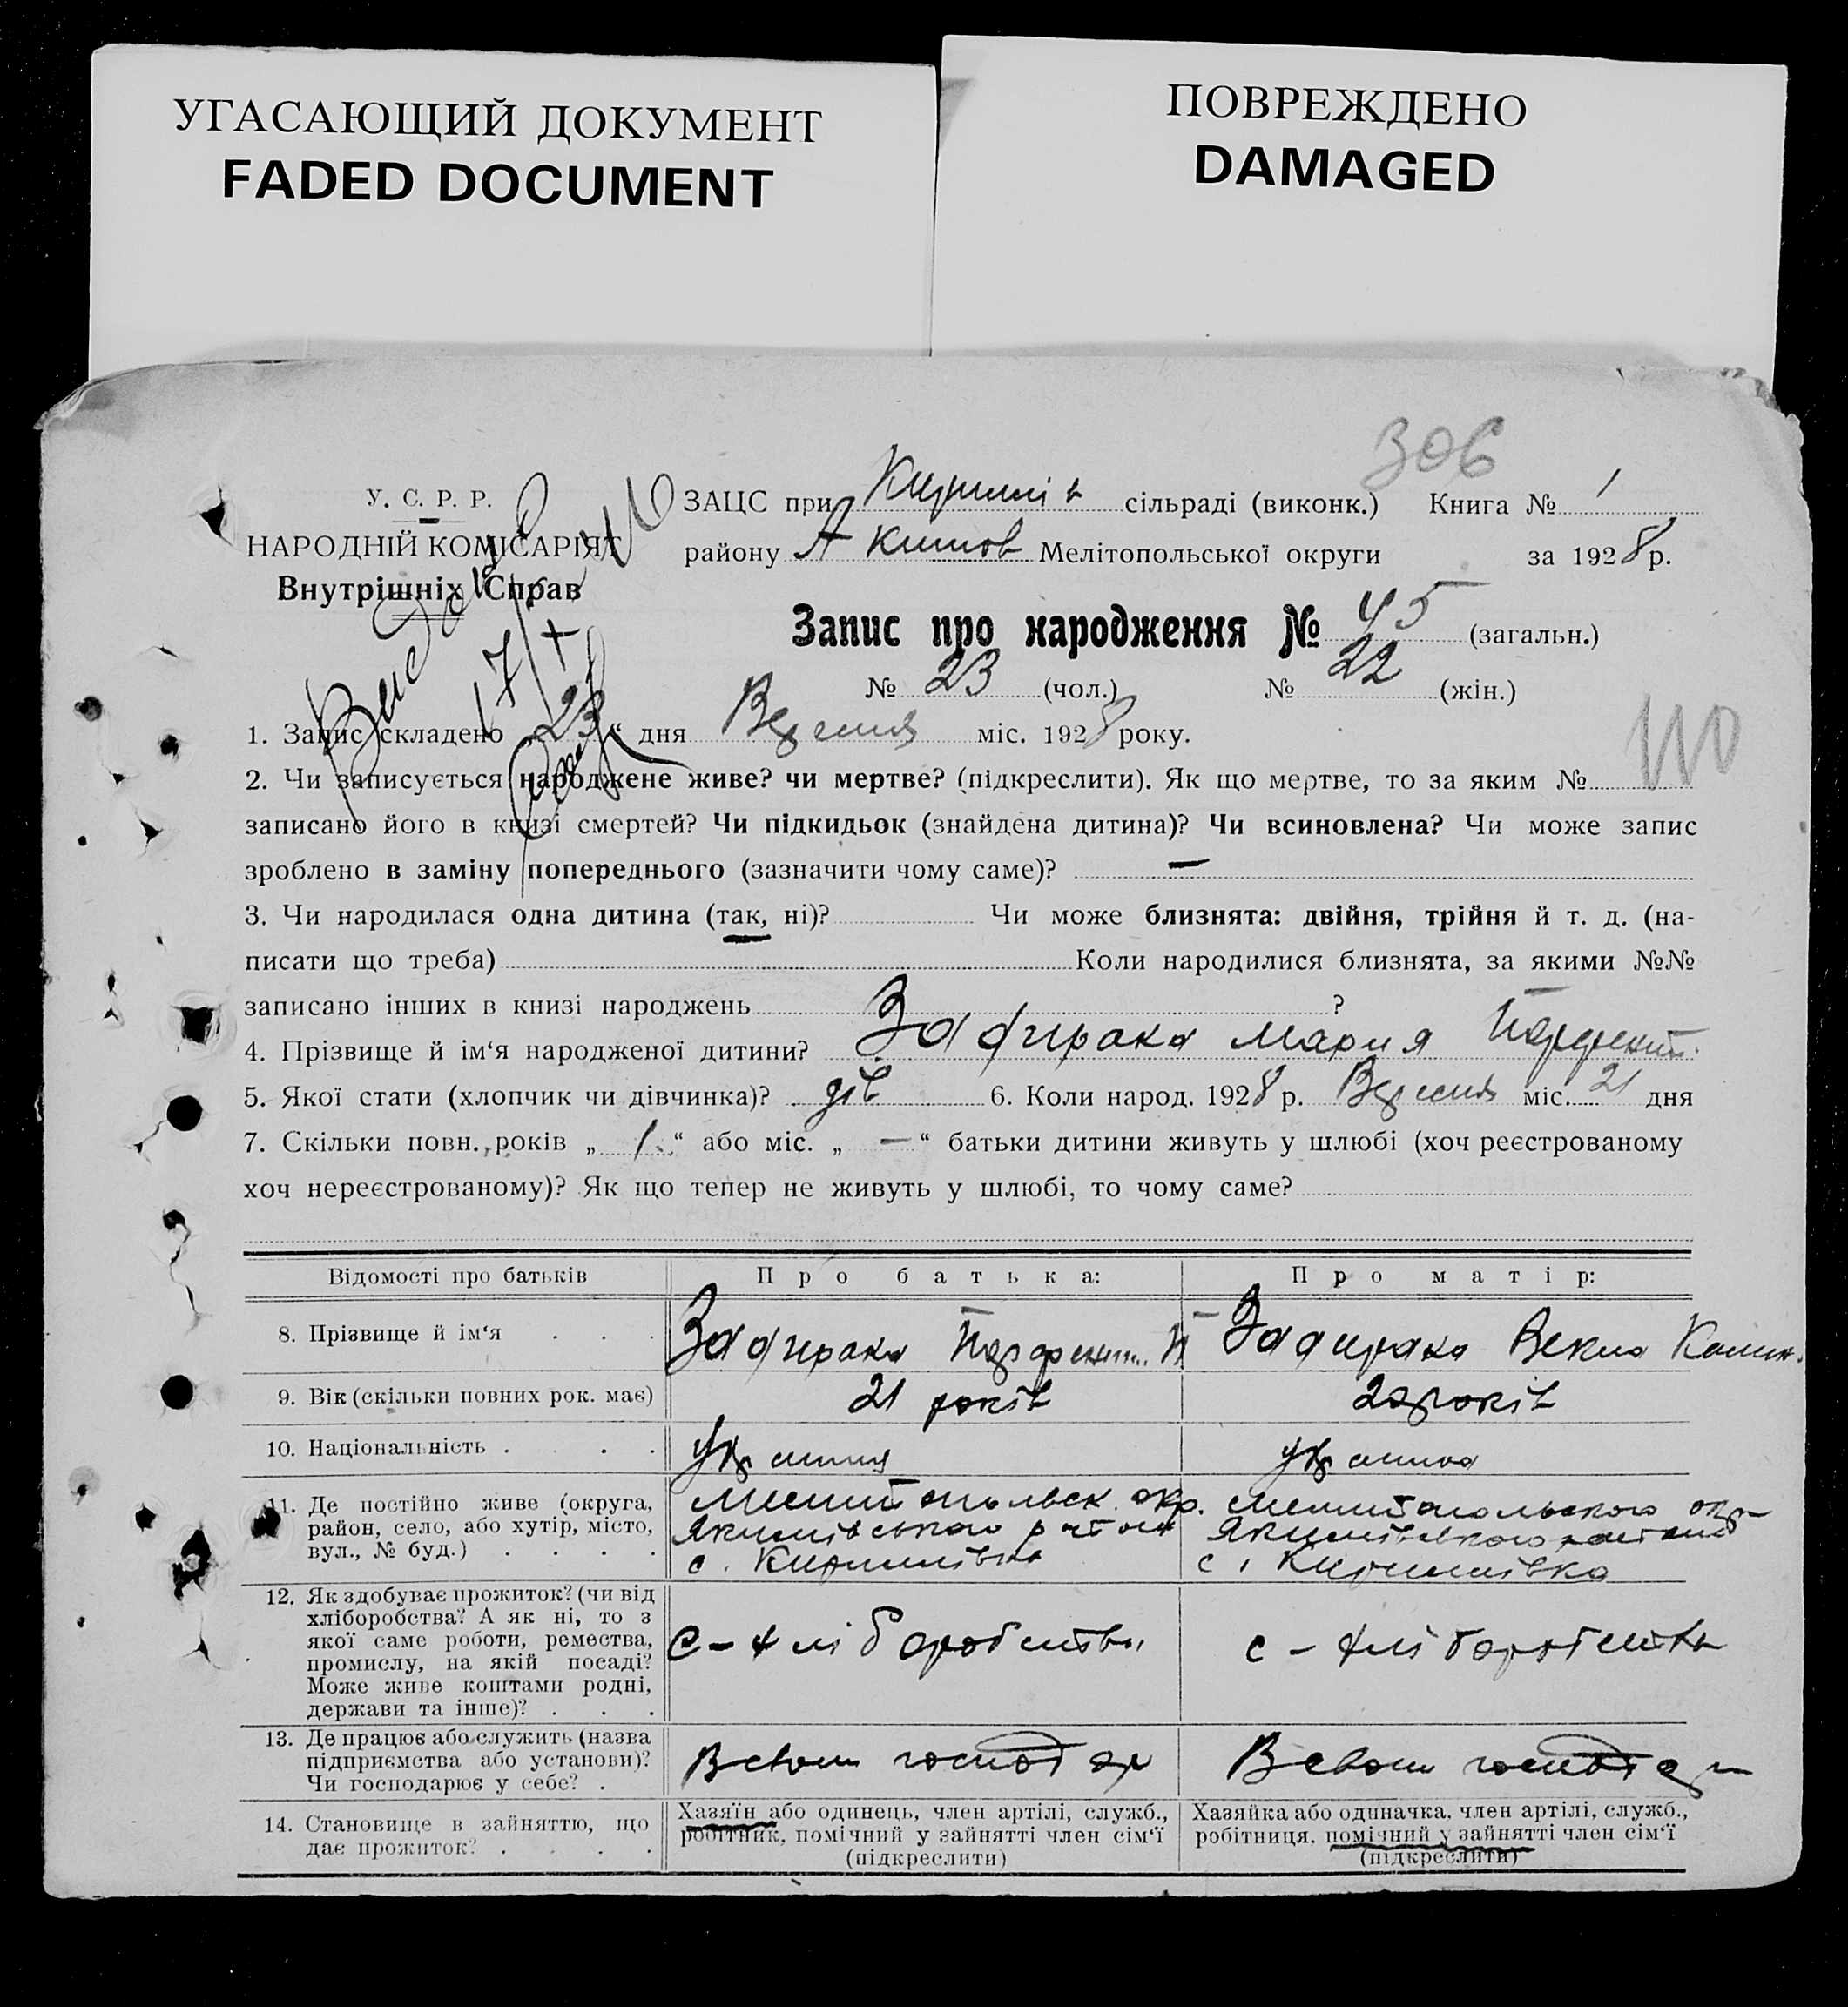 УГАСАЮЩИЙ ДОКУМЕНТ
FADED DOCUMENT
ПОВРЕЖДЕНО
DAMAGED
306
У. С. Р. Р.
НАРОДНІЙ КОМІСАРІЯТ
Внутрішніх Справ
ЗАЦС при Кирилів сільраді (виконк.) Книга № 1
району Якимов Мелітопольської округи за 1928 р.
Запис про народження № 45 (загальн.)
№ 23 (чол.) № 22 (жін.)
110
1. Запис складено „23“ дня Вересня міс. 1928 року.
2. Чи записується народжене живе? чи мертве? (підкреслити). Як що мертве, то за яким №
записано його в книзі смертей? Чи підкидьок (знайдена дитина)? Чи всиновлена? Чи може запис
зроблено в заміну попереднього (зазначити чому саме)? —
3. Чи народилася одна дитина (так, ні)? Чи може близнята: двійня, трійня й т. д. (на-
писати що треба) Коли народилися близнята, за якими №№
записано інших в книзі народжень ?
4. Прізвище й ім‘я народженої дитини? Задирака Мария
5. Якої стати (хлопчик чи дівчинка)? дів 6. Коли народ. 1928 р. Вересня міс. 21 дня
7. Скільки повн. років „ 1 “ або міс. „ — “ батьки дитини живуть у шлюбі (хоч реєстрованому
хоч нереєстрованому)? Як що тепер не живуть у шлюбі, то чому саме?
Відомості про батьків
Про батька:
Про матір:
8. Прізвище й ім‘я . . .
Задирака
Задирака Векла Калин.
9. Вік (скільки повних рок. має)
21 років
20 років
10. Національність . . . .
11. Де постійно живе (округа,
район, село, або хутір, місто,
вул., № буд.) . . . .
Мелитопольск. окр.
Якимівського району
с. Кирилівка
Мелитопольского окр
Якимівського району
с. Кирилівка
12. Як здобуває прожиток? (чи від
хліборобства? А як ні, то з
якої саме роботи, ремества,
промислу, на якій посаді?
Може живе коштами родні,
держави та інше)? . . .
с-хліборобства
с-хліборобства
13. Де працює або служить (назва
підприємства або установи)?
Чи господарює у себе? .
В своем господар
В своем господар
14. Становище в зайняттю, що
дає прожиток? . . . .
Хазяїн або одинець, член артілі, служб.,
робітник, помічний у зайнятті член сім‘ї
(підкреслити)
Хазяйка або одиначка, член артілі, служб.,
робітниця, помічний у зайнятті член сім‘ї
(підкреслити)